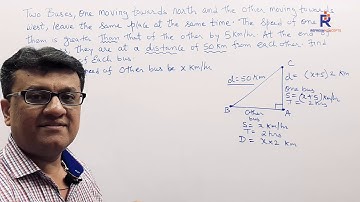 Two Buses, One moving towards north and the Other moving towards
west, leave the same place at the same time. The speed of one
them is greater than that of the other by 5 km/hr. At the end
they are at a distance of 50 km from each other. find
of Each bus
eed of Other bus be x km/hr
C
d = 50 km
d = (x+5) 2 km
One bus
S = (x+5) km/hr
T = 2 hrs
B
Other
bus
A
S = x km/hr
T = 2 hrs
D = x × 2 km